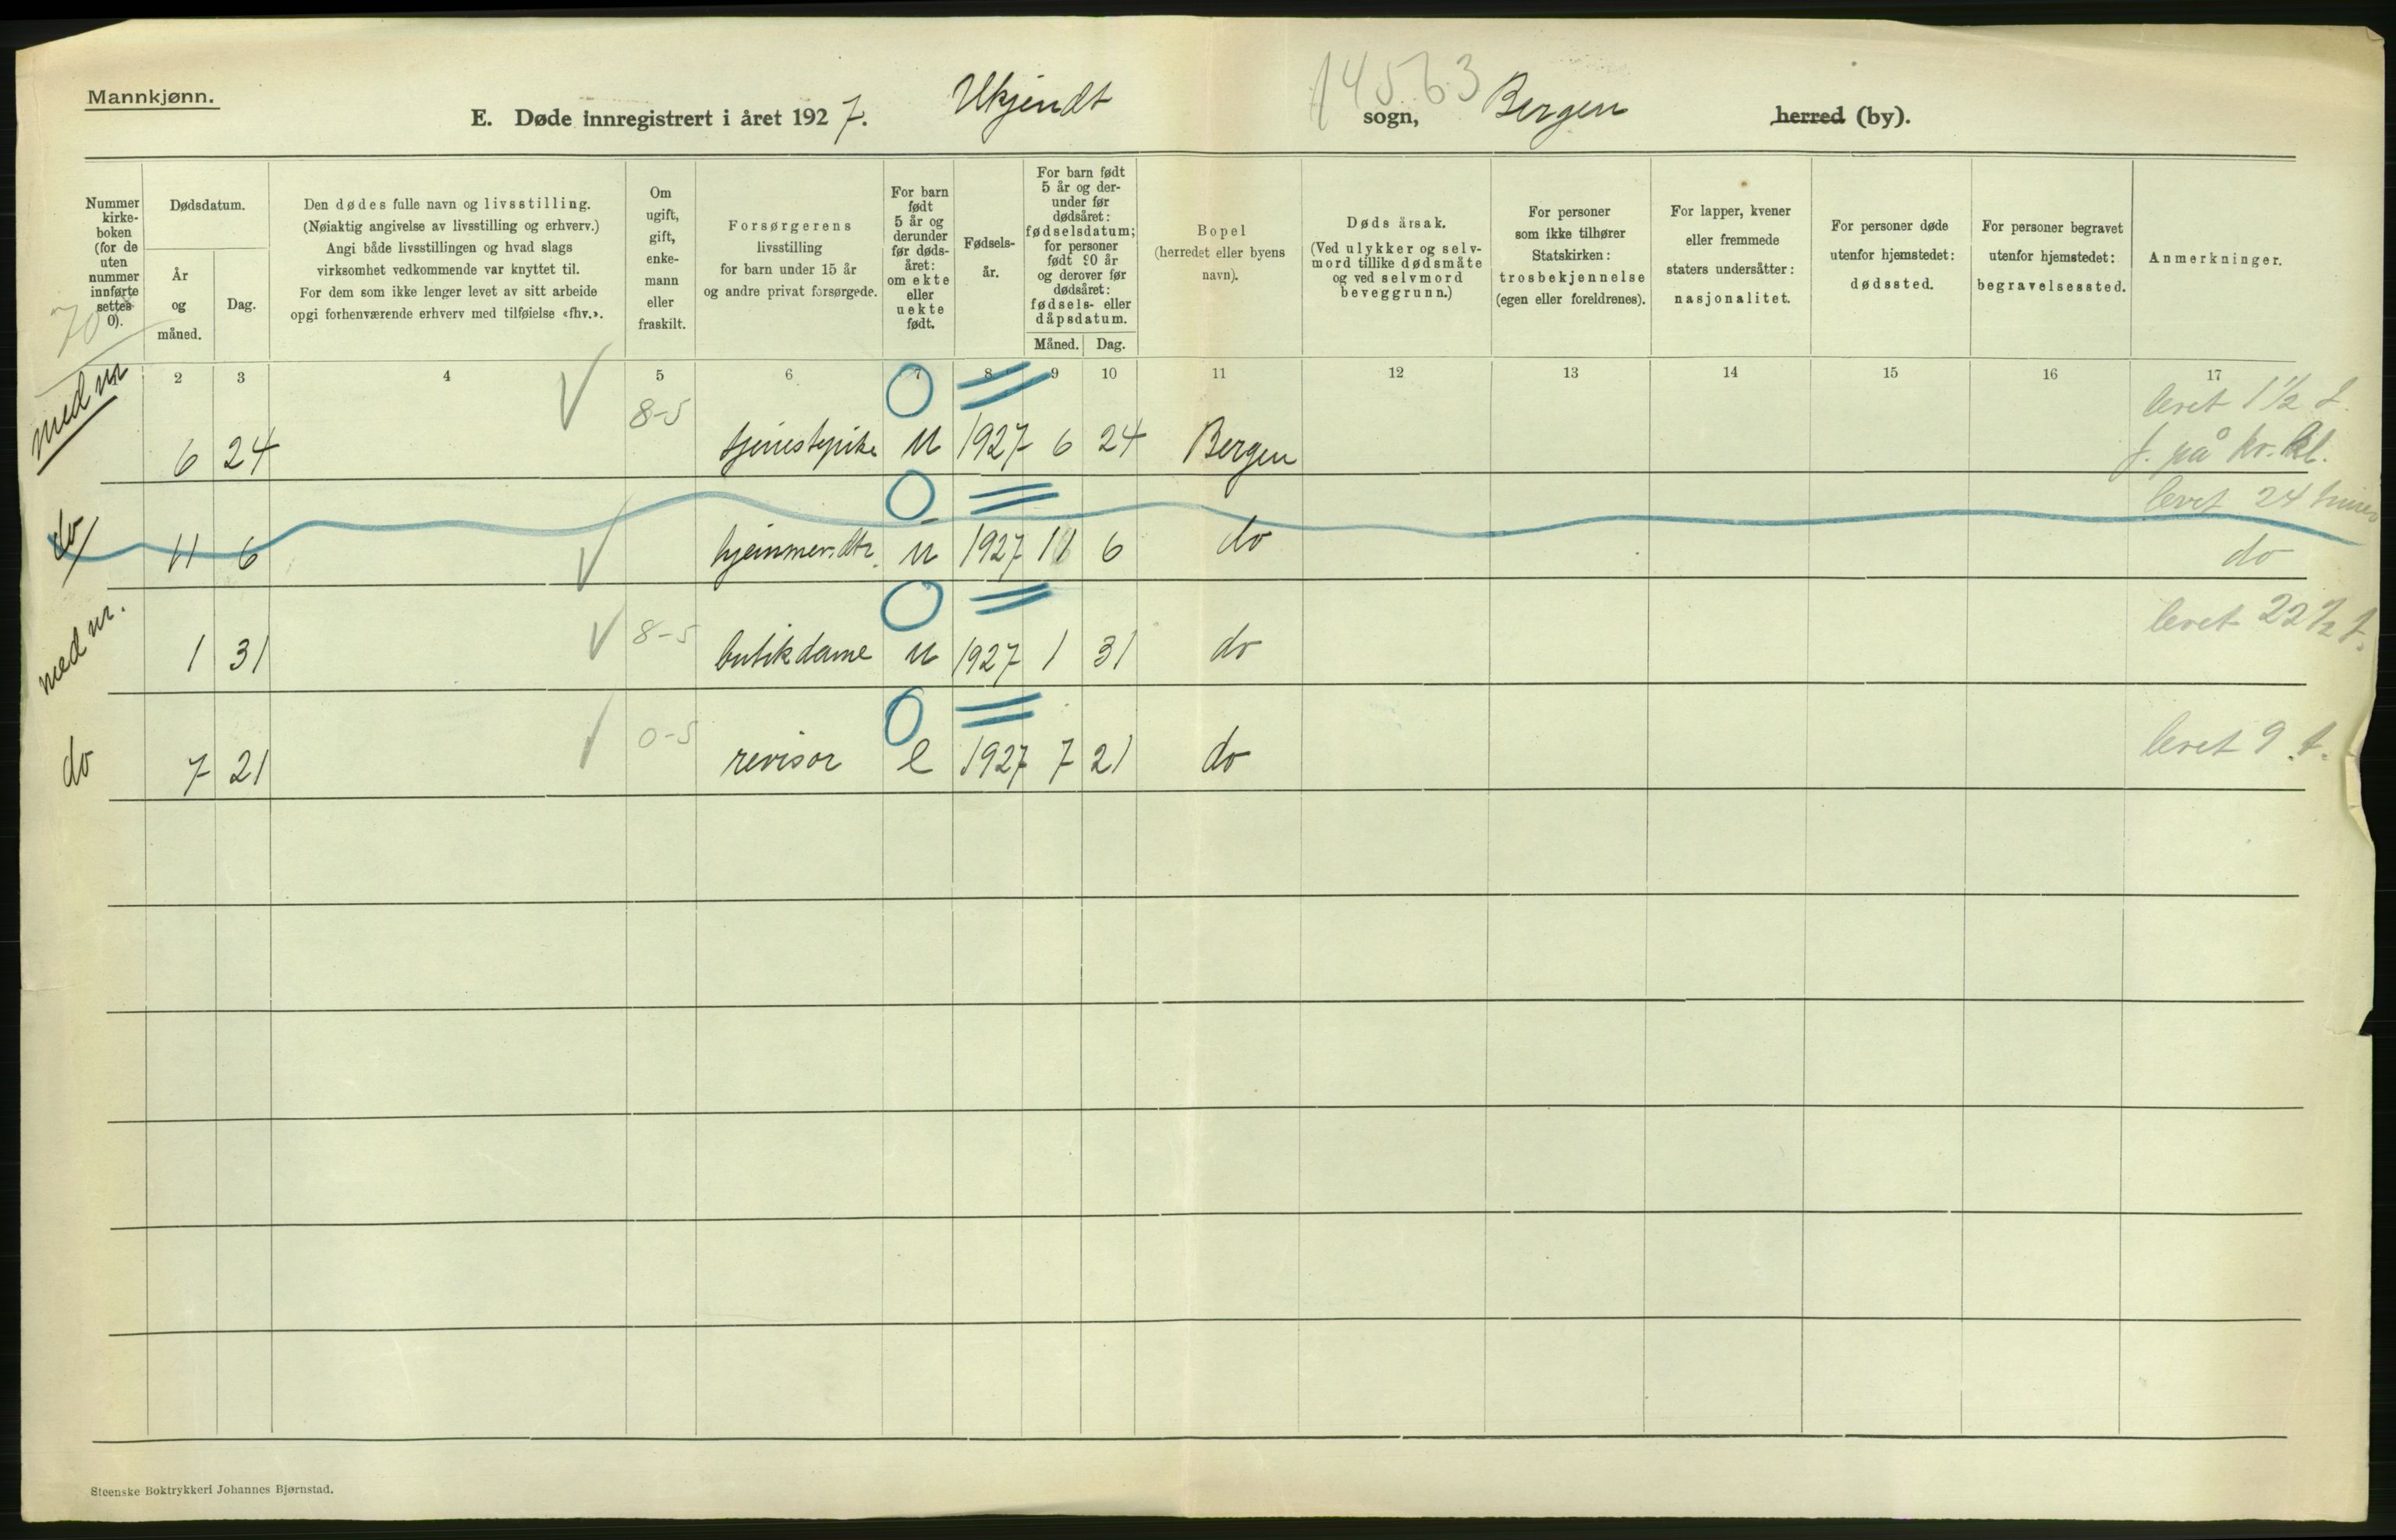 Mannkjønn.
E. Døde innregistrert i året 1927. Ukjendt sogn, Bergen herred (by).
14563
Nummer kirke-boken (for de uten nummer innførte settes 0).
70
Dødsdatum.
År og måned.
Dag.
Den dødes fulle navn og livsstilling.
(Nøiaktig angivelse av livsstilling og erhverv.)
Angi både livsstillingen og hvad slags
virksomhet vedkommende var knyttet til.
For dem som ikke lenger levet av sitt arbeide
opgi forhenværende erhverv med tilføielse «fhv.».
Om
ugift,
gift,
enke-
mann
eller
fraskilt.
Forsørgerens
livsstilling
for barn under 15 år
og andre privat forsørgede.
For barn
født
5 år og
derunder
før døds-
året:
om ekte
eller
uekte
født.
Fødsels-
år.
For barn født
5 år og der-
under før
dødsåret:
fødselsdatum;
for personer
født 90 år
og derover før
dødsåret:
fødsels- eller
dåpsdatum.
Måned. Dag.
Bopel
(herredet eller byens
navn).
Døds årsak.
(Ved ulykker og selv-
mord tillike dødsmåte
og ved selvmord
beveggrunn.)
For personer
som ikke tilhører
Statskirken:
trosbekjennelse
(egen eller foreldrenes).
For lapper, kvener
eller fremmede
staters undersåtter:
nasjonalitet.
For personer døde
utenfor hjemstedet:
dødssted.
For personer begravet
utenfor hjemstedet:
begravelsessted.
Anmerkninger.
2 3 4 5 6 7 8 9 10 11 12 13 14 15 16 17
levet 1½ t.
med nr 6 24 8-5 tjenestepike u 1927 6 24 Bergen f. på kv. kl.
levet 24
do 11 6 u 1927 11 6 do do
levet 22½ t.
med nr. 1 31 8-5 butikdame u 1927 1 31 do
do 7 21 0-5 revisor e 1927 7 21 do levet 9 t.
Steenske Boktrykkeri Johannes Bjørnstad.